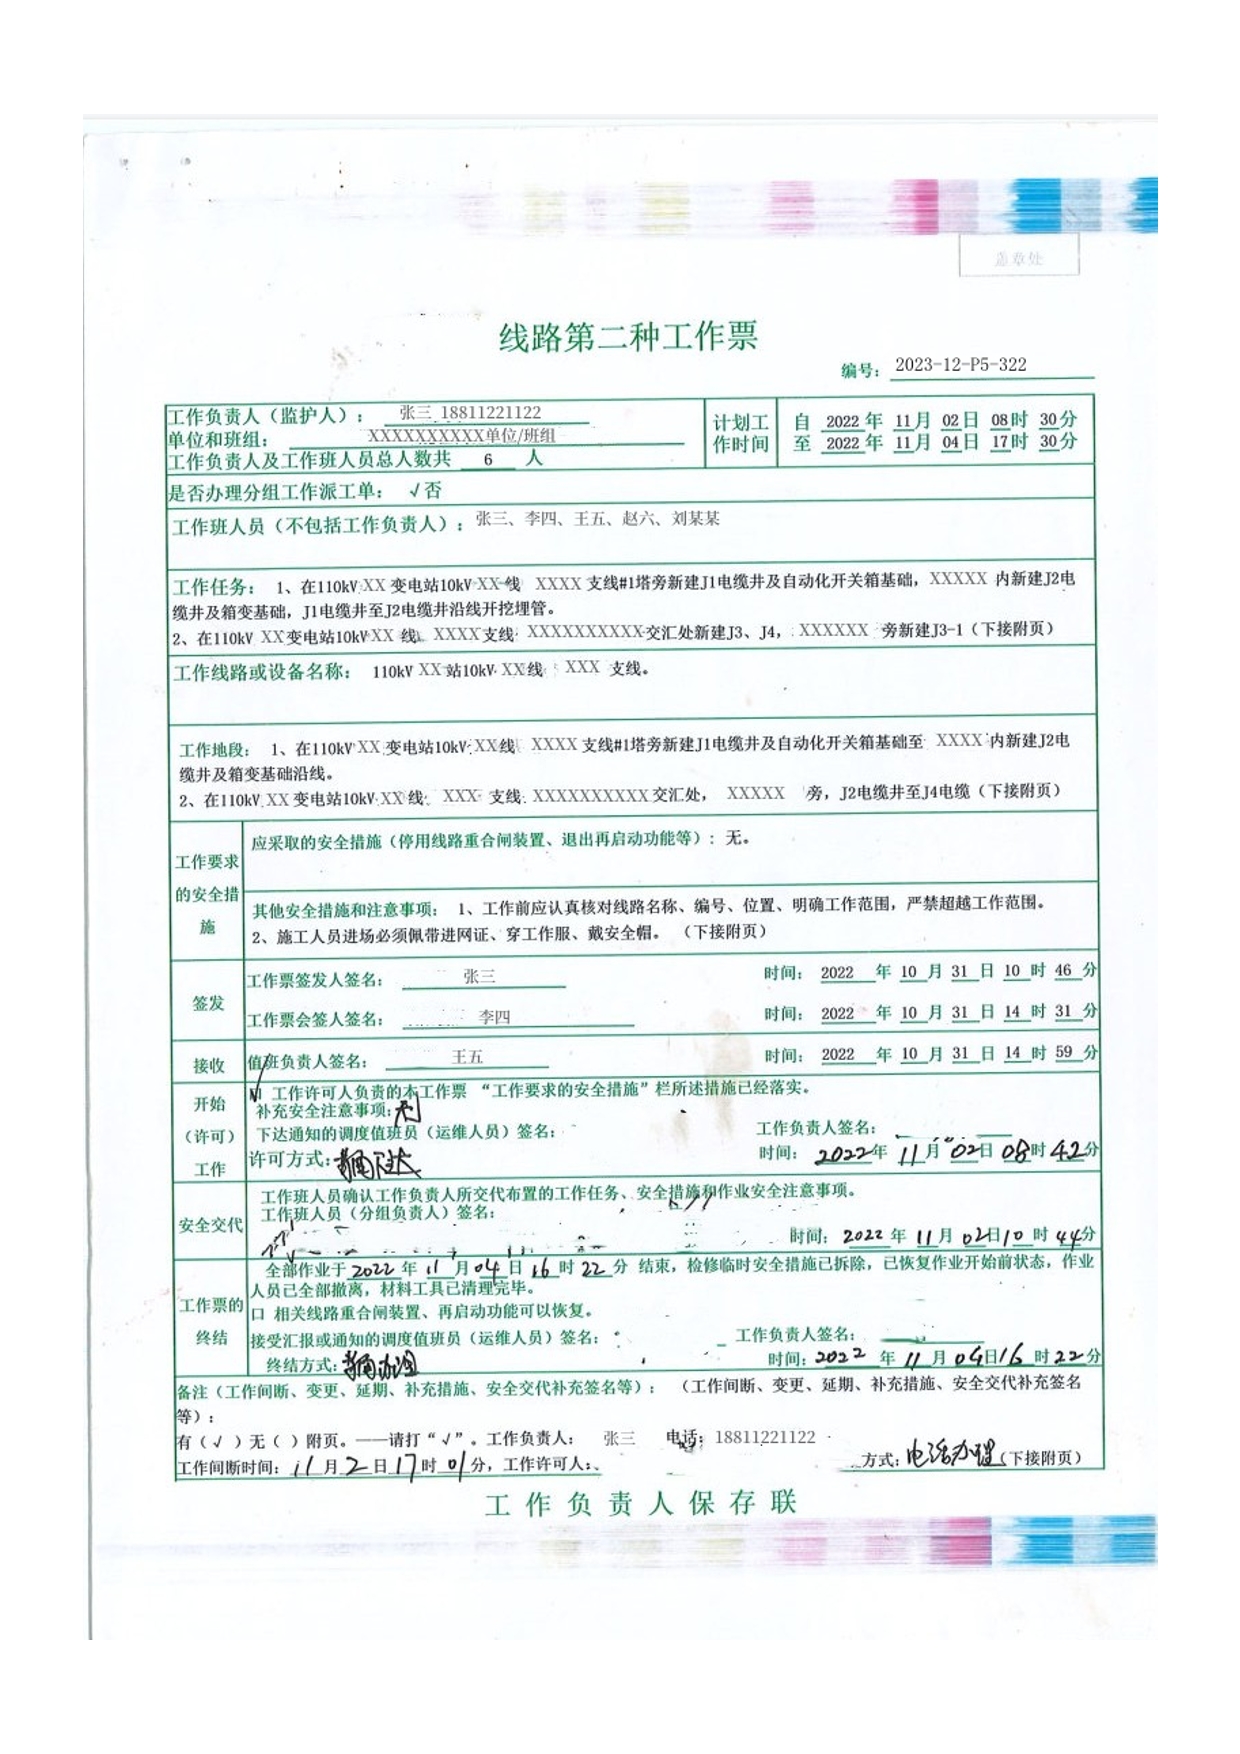 盖章处
线路第二种工作票
编号： 2023-12-P5-322
工作负责人（监护人）： 张三 18811221122
单位和班组： XXXXXXXXXX单位/班组
工作负责人及工作班人员总人数共 6 人
计划工作时间
自 2022 年 11 月 02 日 08 时 30 分
至 2022 年 11 月 04 日 17 时 30 分
是否办理分组工作派工单： √否
工作班人员（不包括工作负责人）： 张三、李四、王五、赵六、刘某某
工作任务： 1、在110kV XX 变电站10kV XX 线 XXXX 支线#1塔旁新建J1电缆井及自动化开关箱基础，XXXXX 内新建J2电
缆井及箱变基础，J1电缆井至J2电缆井沿线开挖埋管。
2、在110kV XX 变电站10kV XX 线 XXXX 支线 XXXXXXXXXX 交汇处新建J3、J4， XXXXXX 旁新建J3-1（下接附页）
工作线路或设备名称： 110kV XX 站10kV XX 线 XXX 支线。
工作地段： 1、在110kV XX 变电站10kV XX 线 XXXX 支线#1塔旁新建J1电缆井及自动化开关箱基础至 XXXX 内新建J2电
缆井及箱变基础沿线。
2、在110kV XX 变电站10kV XX 线 XXX 支线 XXXXXXXXXX 交汇处， XXXXX 旁，J2电缆井至J4电缆（下接附页）
工作要求的安全措施
应采取的安全措施（停用线路重合闸装置、退出再启动功能等）：无。
其他安全措施和注意事项： 1、工作前应认真核对线路名称、编号、位置、明确工作范围，严禁超越工作范围。
2、施工人员进场必须佩带进网证、穿工作服、戴安全帽。（下接附页）
签发
工作票签发人签名： 张三 时间： 2022 年 10 月 31 日 10 时 46 分
工作票会签人签名： 李四 时间： 2022 年 10 月 31 日 14 时 31 分
接收
值班负责人签名： 王五 时间： 2022 年 10 月 31 日 14 时 59 分
开始（许可）工作
工作许可人负责的本工作票 “工作要求的安全措施” 栏所述措施已经落实。
补充安全注意事项：
下达通知的调度值班员（运维人员）签名： 工作负责人签名：
许可方式： 时间： 2022 年 11 月 02 日 08 时 42 分
安全交代
工作班人员确认工作负责人所交代布置的工作任务、安全措施和作业安全注意事项。
工作班人员（分组负责人）签名：
时间： 2022 年 11 月 02 日 10 时 44 分
工作票的终结
全部作业于 2022 年 11 月 04 日 16 时 22 分 结束，检修临时安全措施已拆除，已恢复作业开始前状态，作业
人员已全部撤离，材料工具已清理完毕。
口 相关线路重合闸装置、再启动功能可以恢复。
接受汇报或通知的调度值班员（运维人员）签名： 工作负责人签名：
终结方式： 时间： 2022 年 11 月 04 日 16 时 22 分
备注（工作间断、变更、延期、补充措施、安全交代补充签名等）： （工作间断、变更、延期、补充措施、安全交代补充签名
等）：
有（√）无（ ）附页。——请打“√”。工作负责人： 张三 电话： 18811221122
工作间断时间： 11 月 2 日 17 时 01 分，工作许可人： 方式： 电话办理 （下接附页）
工作负责人保存联